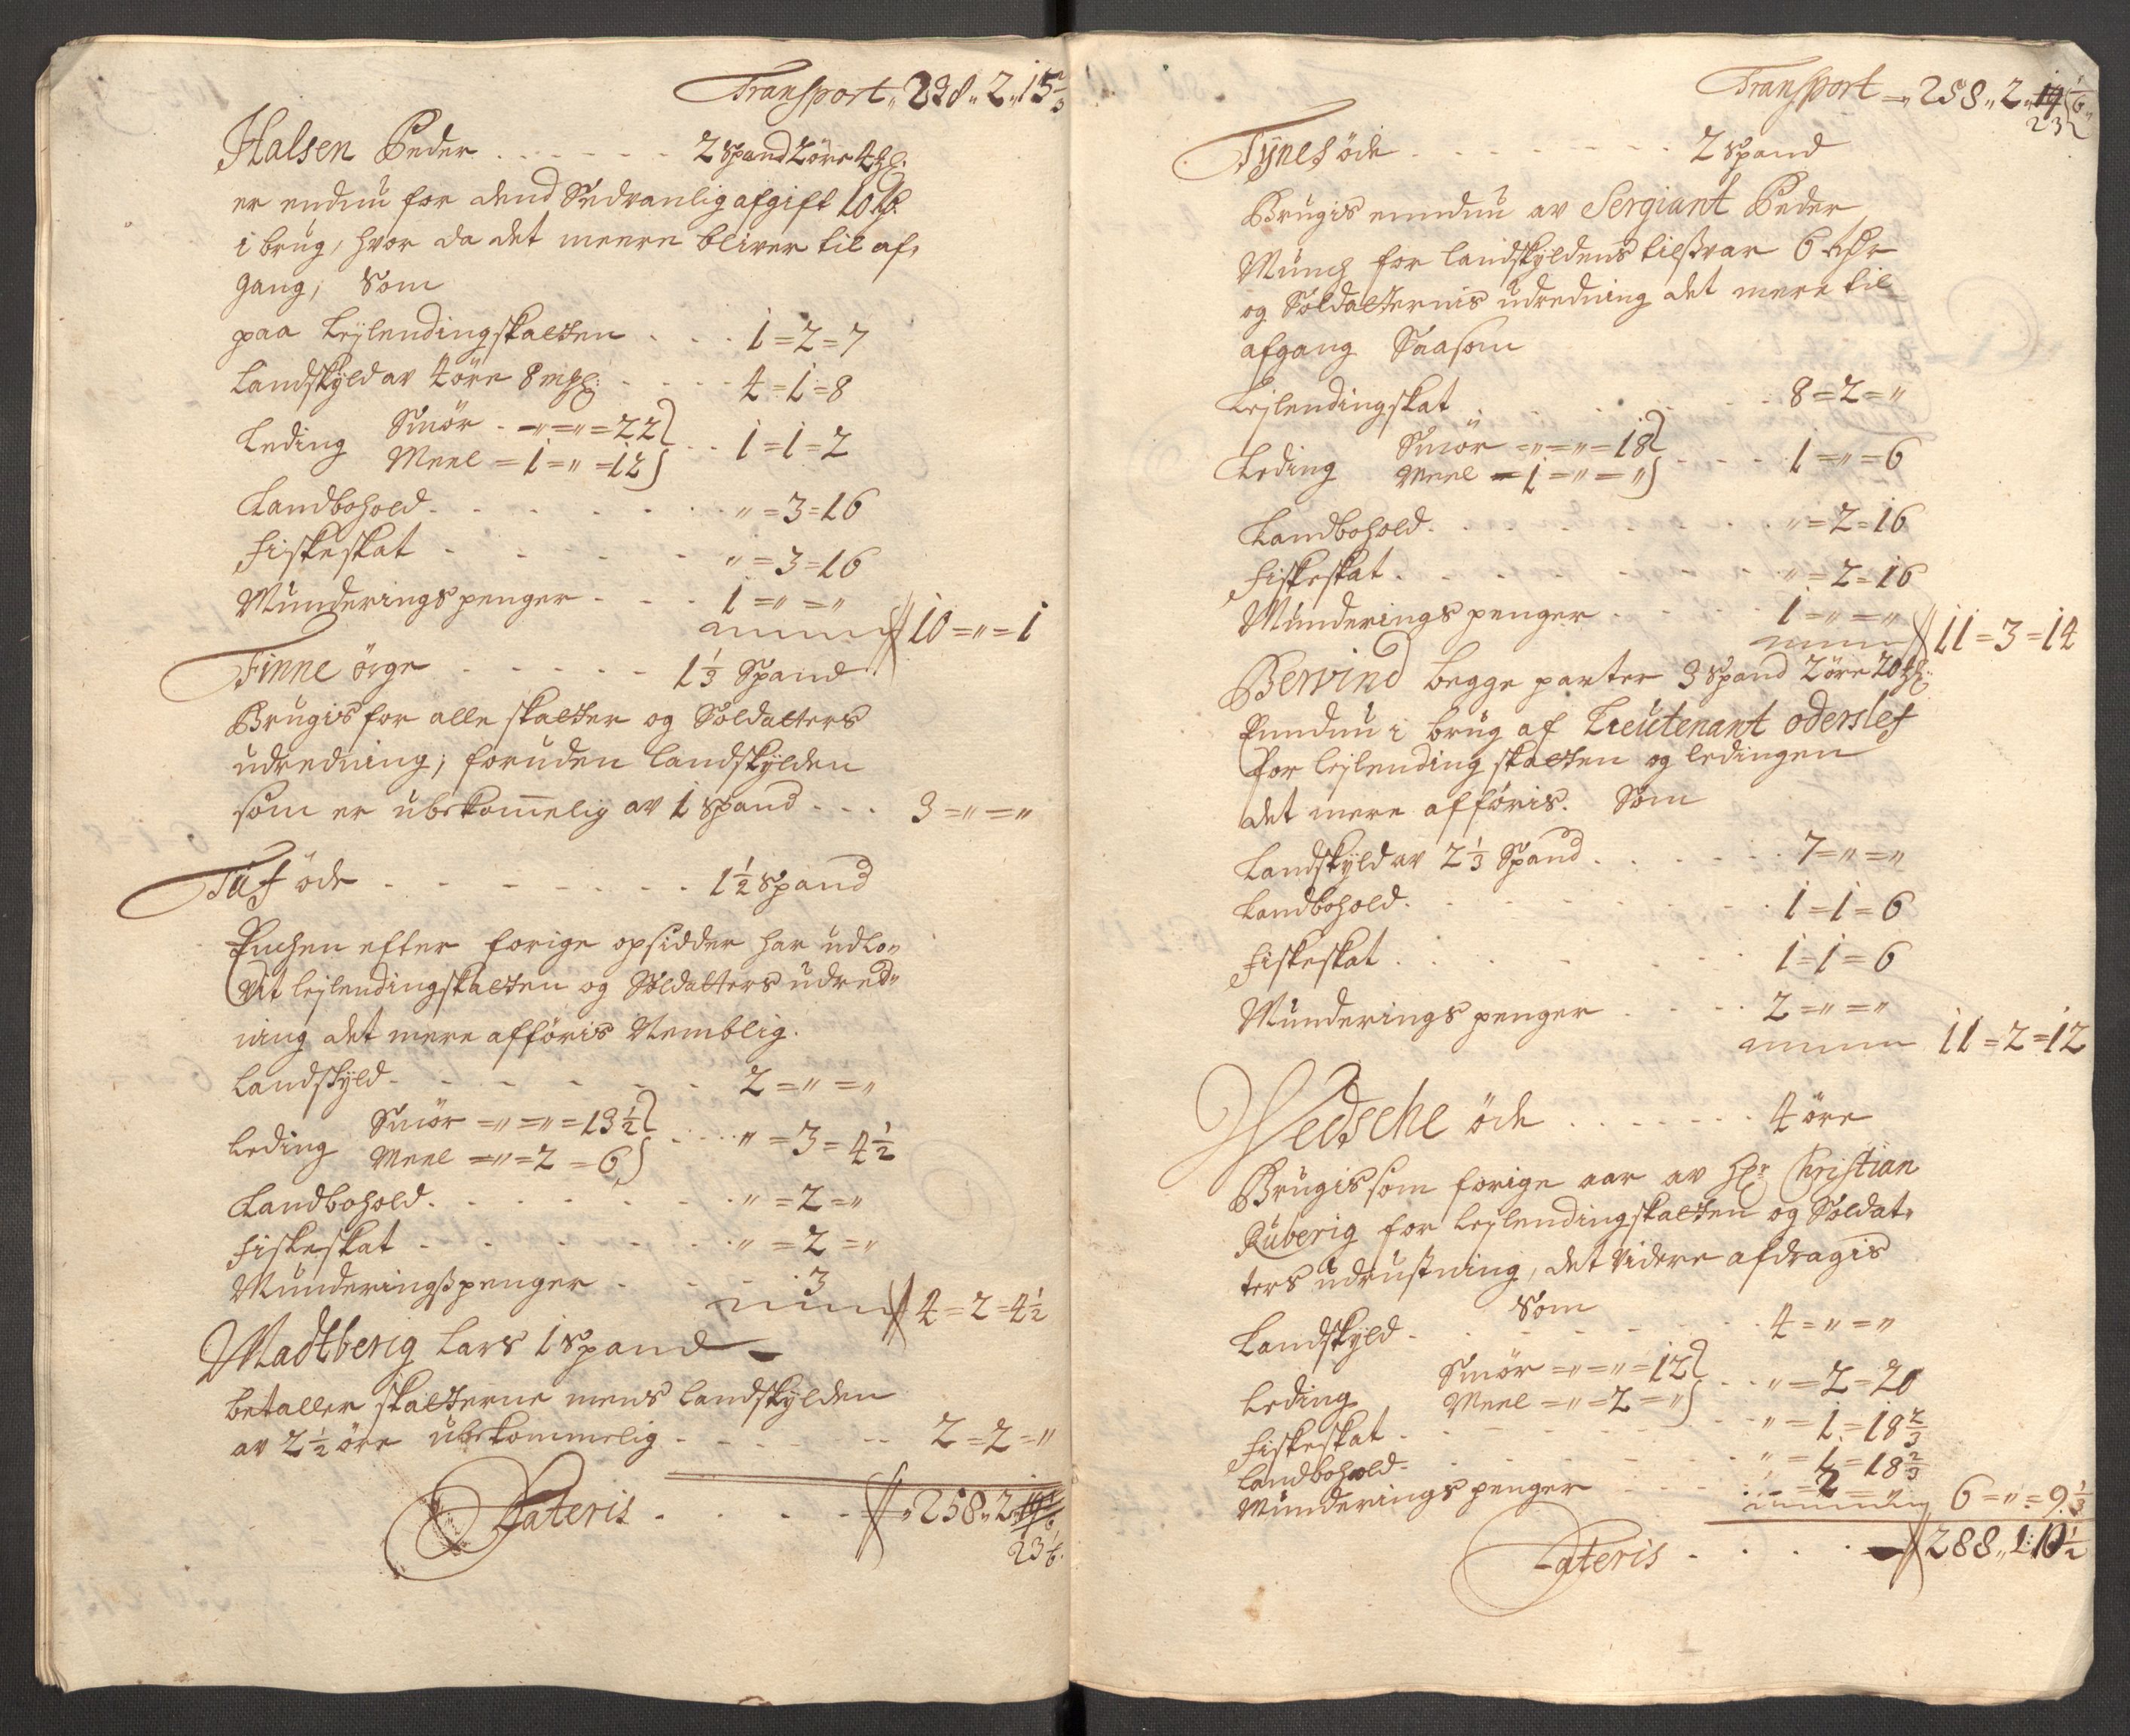 Transport „ 238 „ 2 „ 15 2/3
Halsen Peder . . . . . . 2 Spand 2 öre 4 mkl:
er endnu for dend Sedvanlig afgift 10 Rd
i brug, hvor da det meere bliver til af-
gang, Som
paa Leylendingskatten . . . 1 = 2 = 7
Landskyld av 4 öre 8 mkl: . . . . 4 = 1 = 8
Leding Smör - „ = „ = 22
Meel = 1 = „ = 12 . . 1 = 1 = 2
Landbohold . . . . . . . „ = 3 = 16
Fiskeskat . . . . . „ = 3 = 16
Munderings penger . . . 1 = „ = „
10 = „ = 1
Finne örge . . . . . 1 1/3 Spand
Brugis for alle skatter og Soldatters
udredning, foruden landskylden
som er ubekomelig av 1 Spand . . . 3 = „ = „
Tuf öde . . . . . . . 1 1/2 Spand
Enchen efter forige opsidder har udlo-
vit leylendingskatten og Soldatters udred-
ning det mere afföris Nemblig.
Landskyld . . . . . . 2 = „ = „
Leding Smör = „ = „ = 13 1/2
Meel = „ = 2 = 6 . . . „ = 3 = 4 1/2
Landbohold . . . . . . . „ = 2 = „
Fiskeskat . . . . . . „ = 2 = „
Munderingspenger . . . . 3
4 = 2 = 4 1/2
Madtberig Lars 1 Spand
betaller skatterne mens landskylden
av 2 1/2 öre ubekommelig . . . . . 2 = 2 = „
Lateris . . . . . „ 258 „ 2 „ 19 1/6
23 1/6.
Transport = „ 258 „ 2 „ 19 1/6 „
23
Tÿnes öde . . . . . . . . 2 Spand
Brugis enndnu av Sergiant Peder
Münch for landskyldens tilsvar 6 Rdr
og Soldatternis udredning det mere til
afgang Saasom
Leylendingskat . . . . . . 8 = 2 = „
Leding Smör = „ = „ = 18
Meel = 1 = „ = „ . . . . 1 = „ = 6
Landbohold . . . . . . . „ = 2 = 16
Fiskeskat . . . . . . . . „ = 2 = 16
Munderings penger . . . . 1 = „ = „
11 = 3 = 14
Bervind begge parter 3 Spand 2 öre 20 mkl:
Enndnu i brug af Lieutenant oderslef
for leylending skatten og ledingen
det mere afföris. Som
Landskyld av 2 1/3 Spand . . . . . . 7 = „ = „
Landbohold . . . . . . . . . 1 = 1 = 6
Fiskeskat . . . . . . . . 1 = 1 = 6
Munderings penger . . . . 2 = „ = „
11 = 2 = 12
Wedsche öde . . . . . . 4 öre
Brugis som forige aar av Hr: Christian
Ruberig for leylendingskatten og Soldat-
ters udrustning, det videre afdragis
Som
Landskyld . . . . . . . . . 4 = „ = „
Leding Smör = „ = „ = 12
Meel = „ = 2 = „ . . „ = 2 = 20
Fiskeskat . . . . . . . . „ = 1 = 18 2/3
Landbohold . . . . . . . . „ = 1 = 18 2/3
Munderings penger . . . . . „ = 2 = „
6 = „ = 9 1/3
Lateris . . . . 288 „ 1: 10 1/2